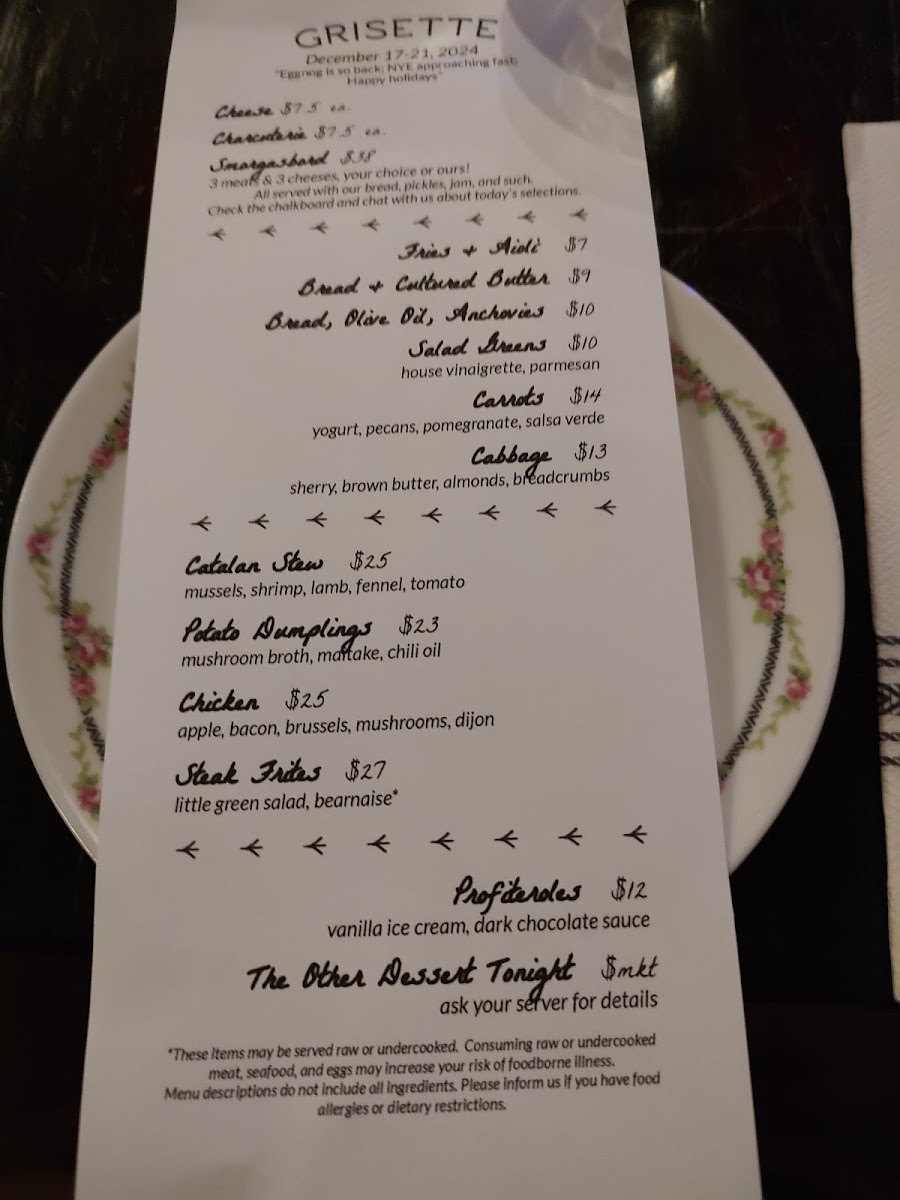 GRISETTE
December 17-21, 2024
"Eggnog is so back; NYE approaching fast;
Happy holidays"
Cheese $7.5 ea.
Charcuterie $7.5 ea.
Smorgasbord $38
3 meats & 3 cheeses, your choice or ours!
All served with our bread, pickles, jam, and such.
Check the chalkboard and chat with us about today's selections.
Fries + Aioli $7
Bread + Cultured Butter $9
Bread, Olive Oil, Anchovies $10
Salad Greens $10
house vinaigrette, parmesan
Carrots $14
yogurt, pecans, pomegranate, salsa verde
Cabbage $13
sherry, brown butter, almonds, breadcrumbs
Catalan Stew $25
mussels, shrimp, lamb, fennel, tomato
Potato Dumplings $23
mushroom broth, maitake, chili oil
Chicken $25
apple, bacon, brussels, mushrooms, dijon
Steak Frites $27
little green salad, bearnaise*
Profiteroles $12
vanilla ice cream, dark chocolate sauce
The Other Dessert Tonight $mkt
ask your server for details
*These items may be served raw or undercooked. Consuming raw or undercooked
meat, seafood, and eggs may increase your risk of foodborne illness.
Menu descriptions do not include all ingredients. Please inform us if you have food
allergies or dietary restrictions.